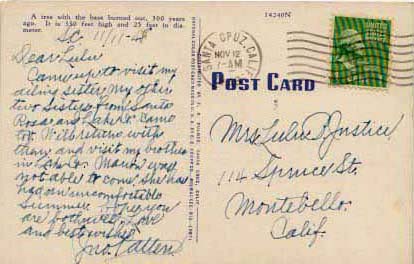 A tree with the base burned out, 300 years
ago. It is 330 feet high and 25 feet in dia-
meter.
14240N
S.C. 11/11-48
Dear Lulu
Came up to visit my
ailing sister. My other
two sisters from Santa
Rosa and Lake Co. came
too. Will return with
them and visit my brother
in Lake Co. Maria was
not able to come. She has
had an uncomfortable
summer. Hope you
are both well. Love
and best wishes
Jno. Patten
SANTA CRUZ, CALIF.
NOV 12
7-AM
POST CARD
Mrs. Lulu P. Justice
114 Spruce St.
Montebello.
Calif.